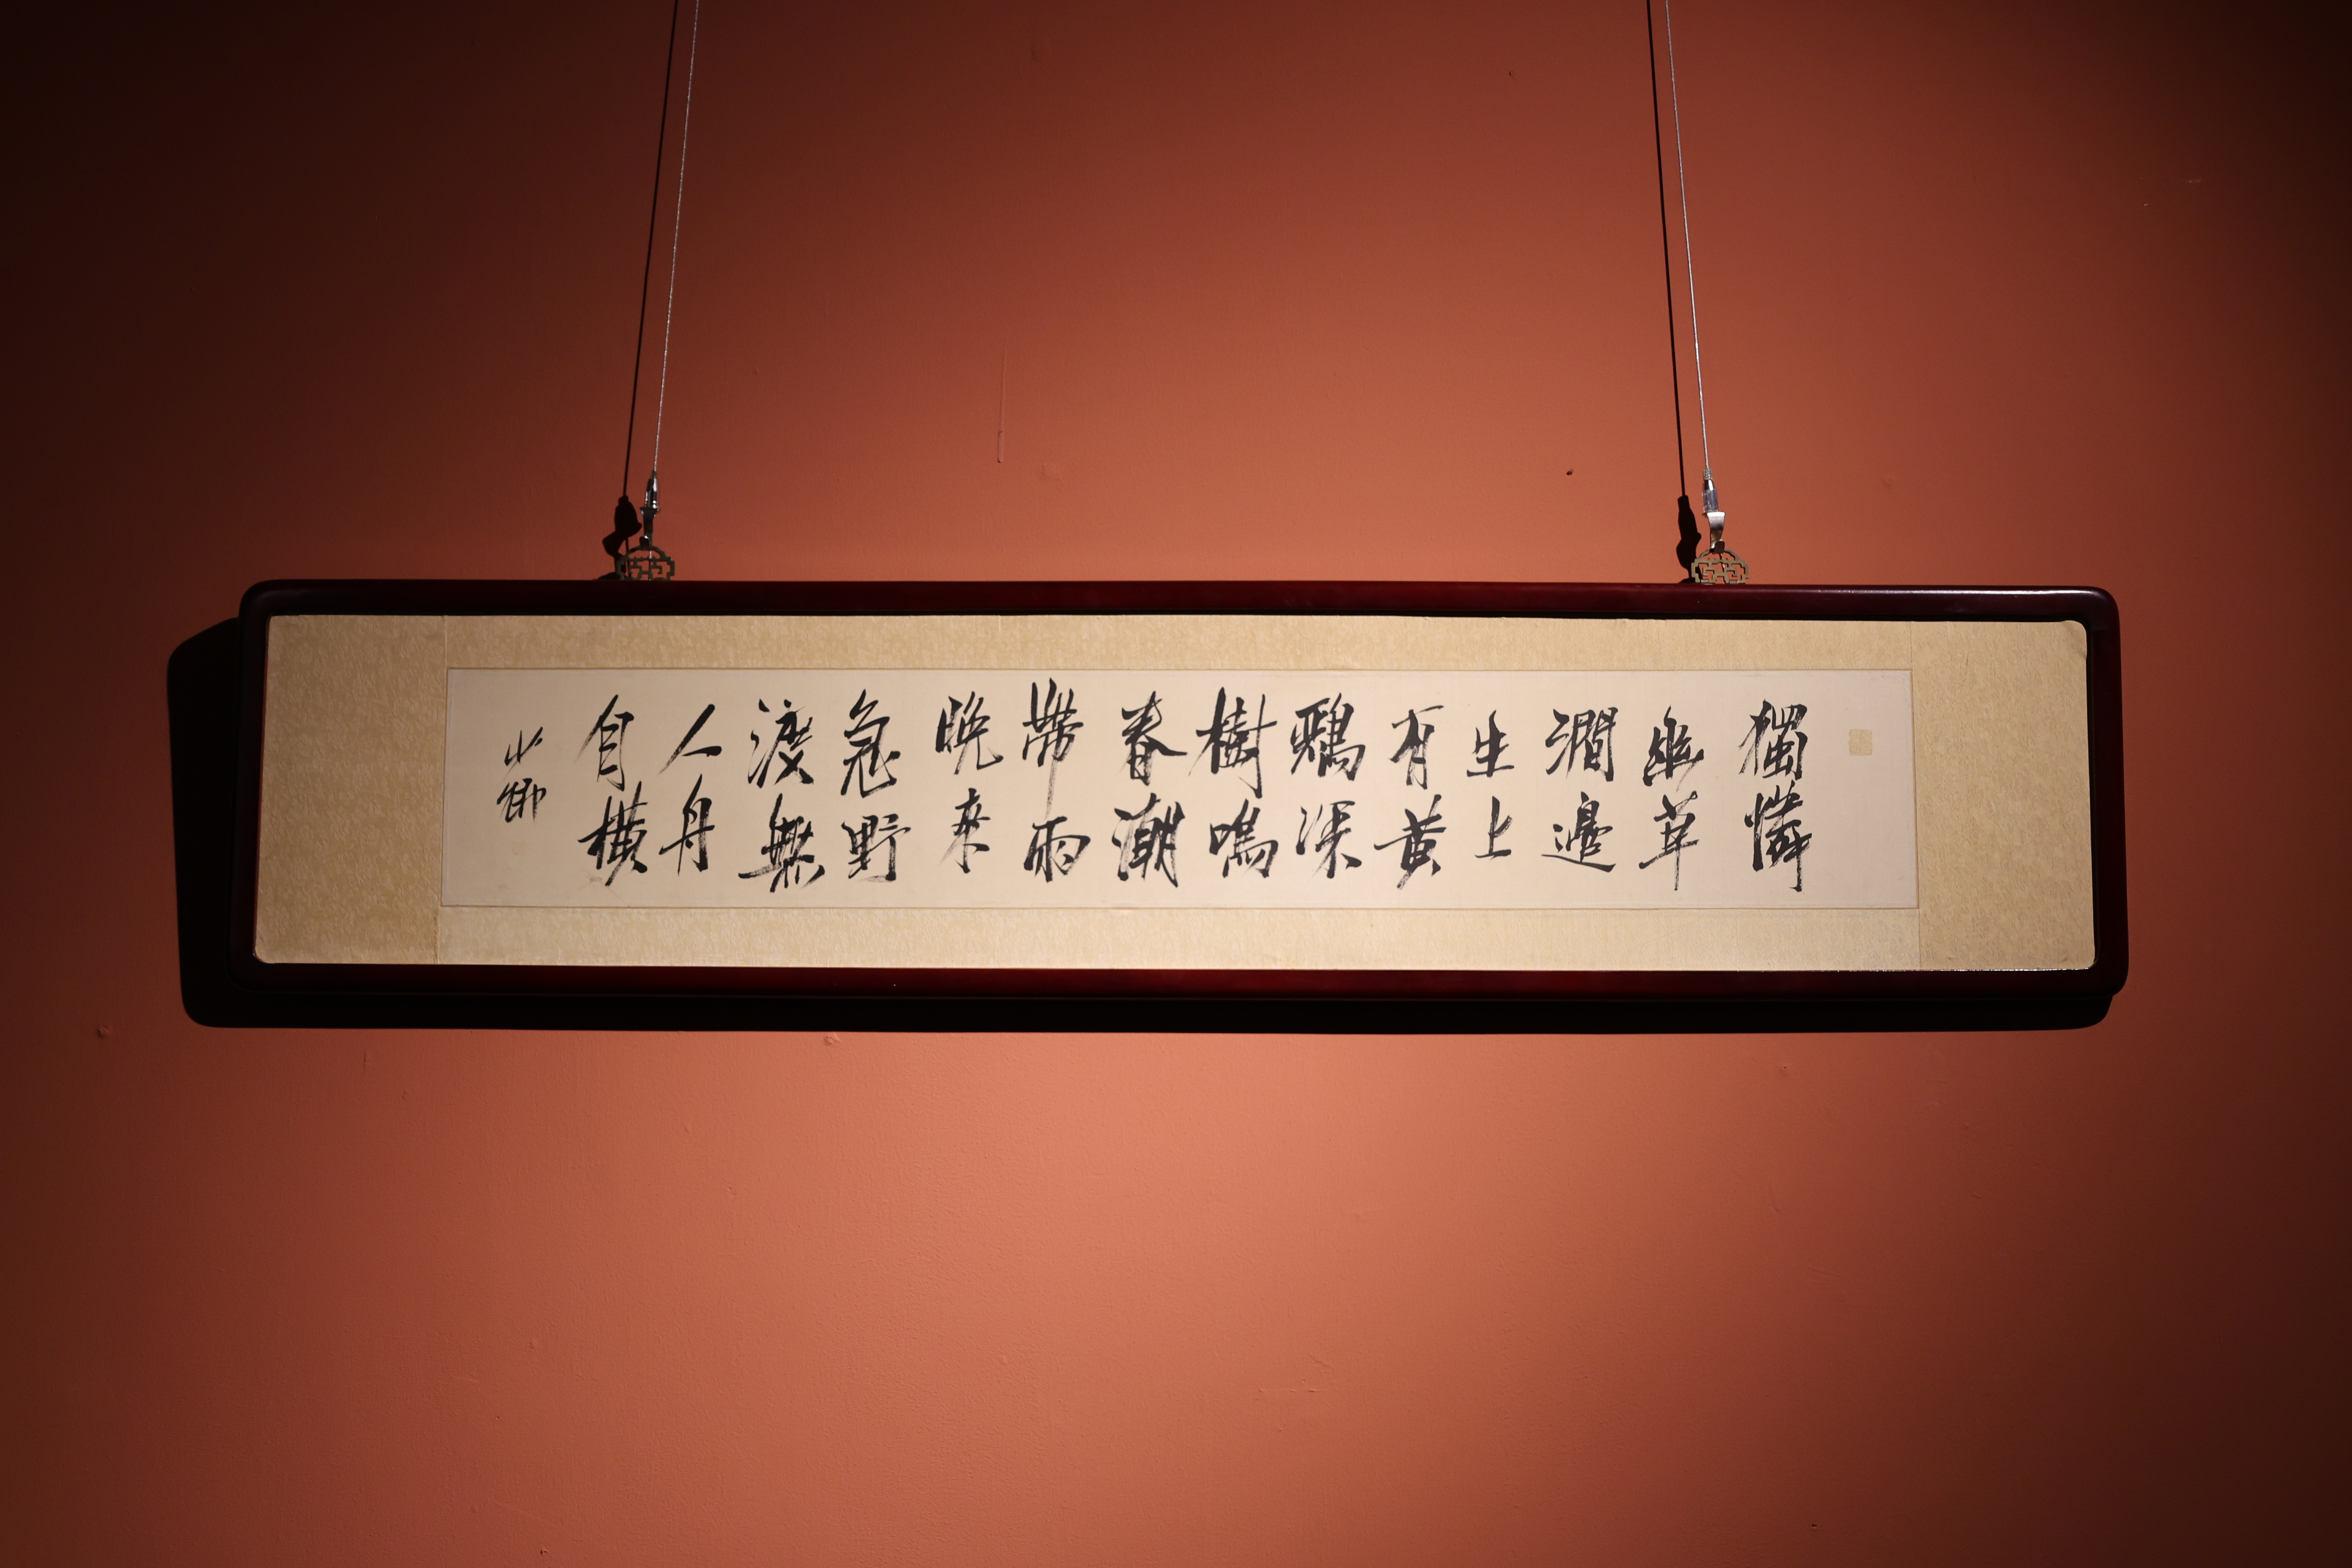 獨憐
幽草
澗邊
生上
有黃
鸝深
樹鳴
春潮
帶雨
晚來
急野
渡無
人舟
自橫